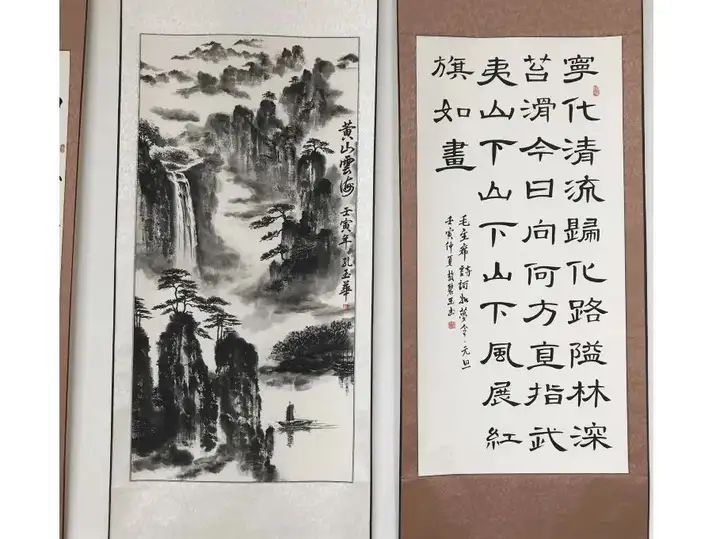 黃山雲海
壬寅年孔玉華
寧化清流歸化路隘林深
苔滑今日向何方直指武
夷山下山下山下風展紅
旗如畫
毛主席詩詞如夢令·元旦
壬寅仲夏